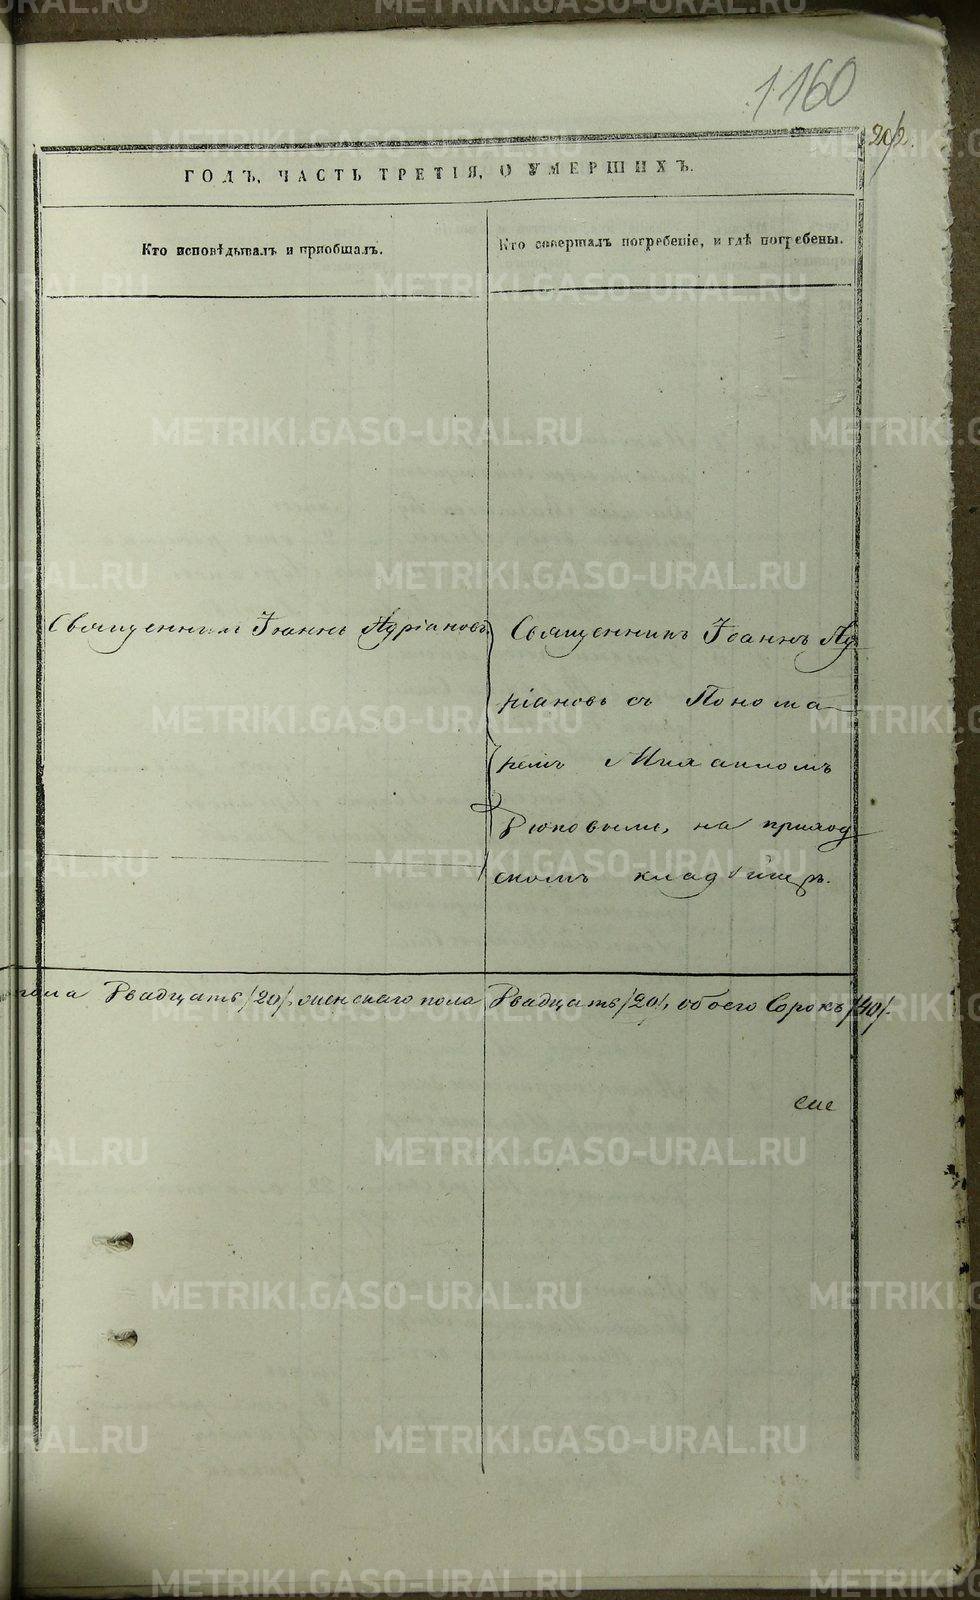 1160
202.
ГОДЪ, ЧАСТЬ ТРЕТІЯ, О УМЕРШИХЪ.
Кто исповѣдывалъ и пріобщалъ.
Кто совершалъ погребеніе, и гдѣ погребены.
Священникъ Іоаннъ Адріановъ.
Священникъ Іоаннъ Ад
ріановъ съ Понома
ремъ
на приход
скомъ кладбищѣ.
пола Двадцать /20/, женскаго пола Двадцать /20/, обоего Сорокъ /40/.
METRIKI.GASO-URAL.RU